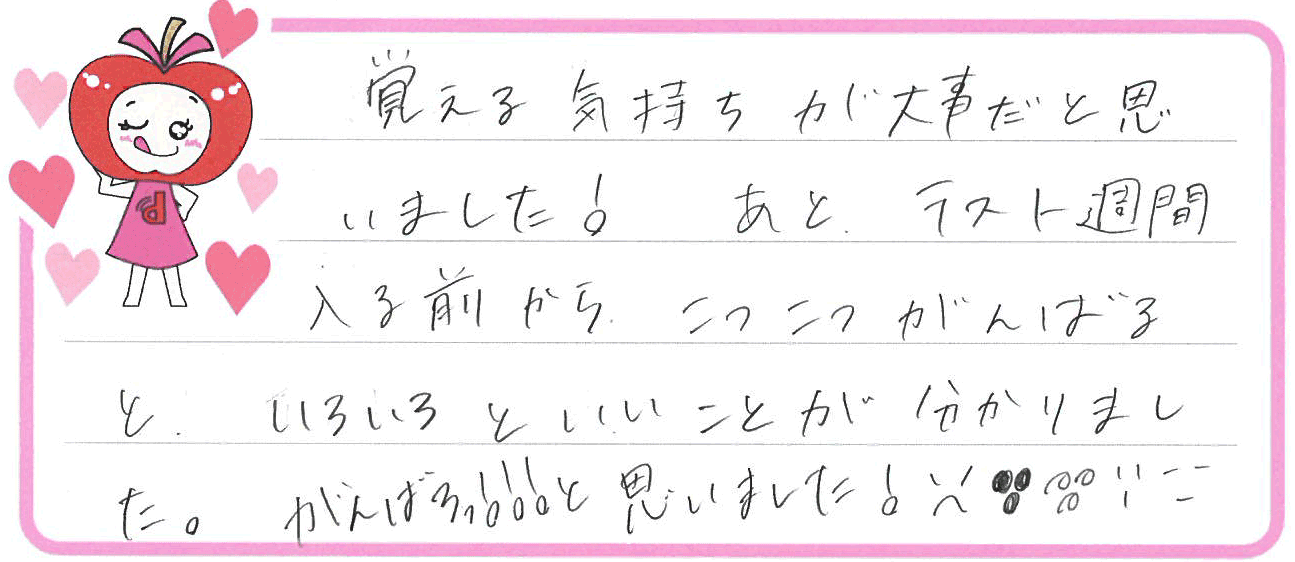 覚える気持ちが大事だと思
いました! あと、テスト週間
入る前から、こつこつがんばる
と、いろいろといいことが分かりまし
た。がんばろっ!!!!と思いました!